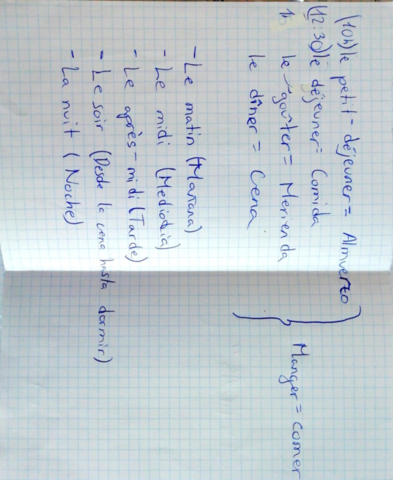 (10h) le petit-déjeuner = Almuerzo
(12:30) le déjeuner = Comida
1h
le goûter = Merienda
le dîner = Cena
Manger = comer
- Le matin (Mañana)
- Le midi (Mediodia)
- Le après-midi (Tarde)
- Le soir (Desde la cena hasta dormir)
- La nuit (Noche)